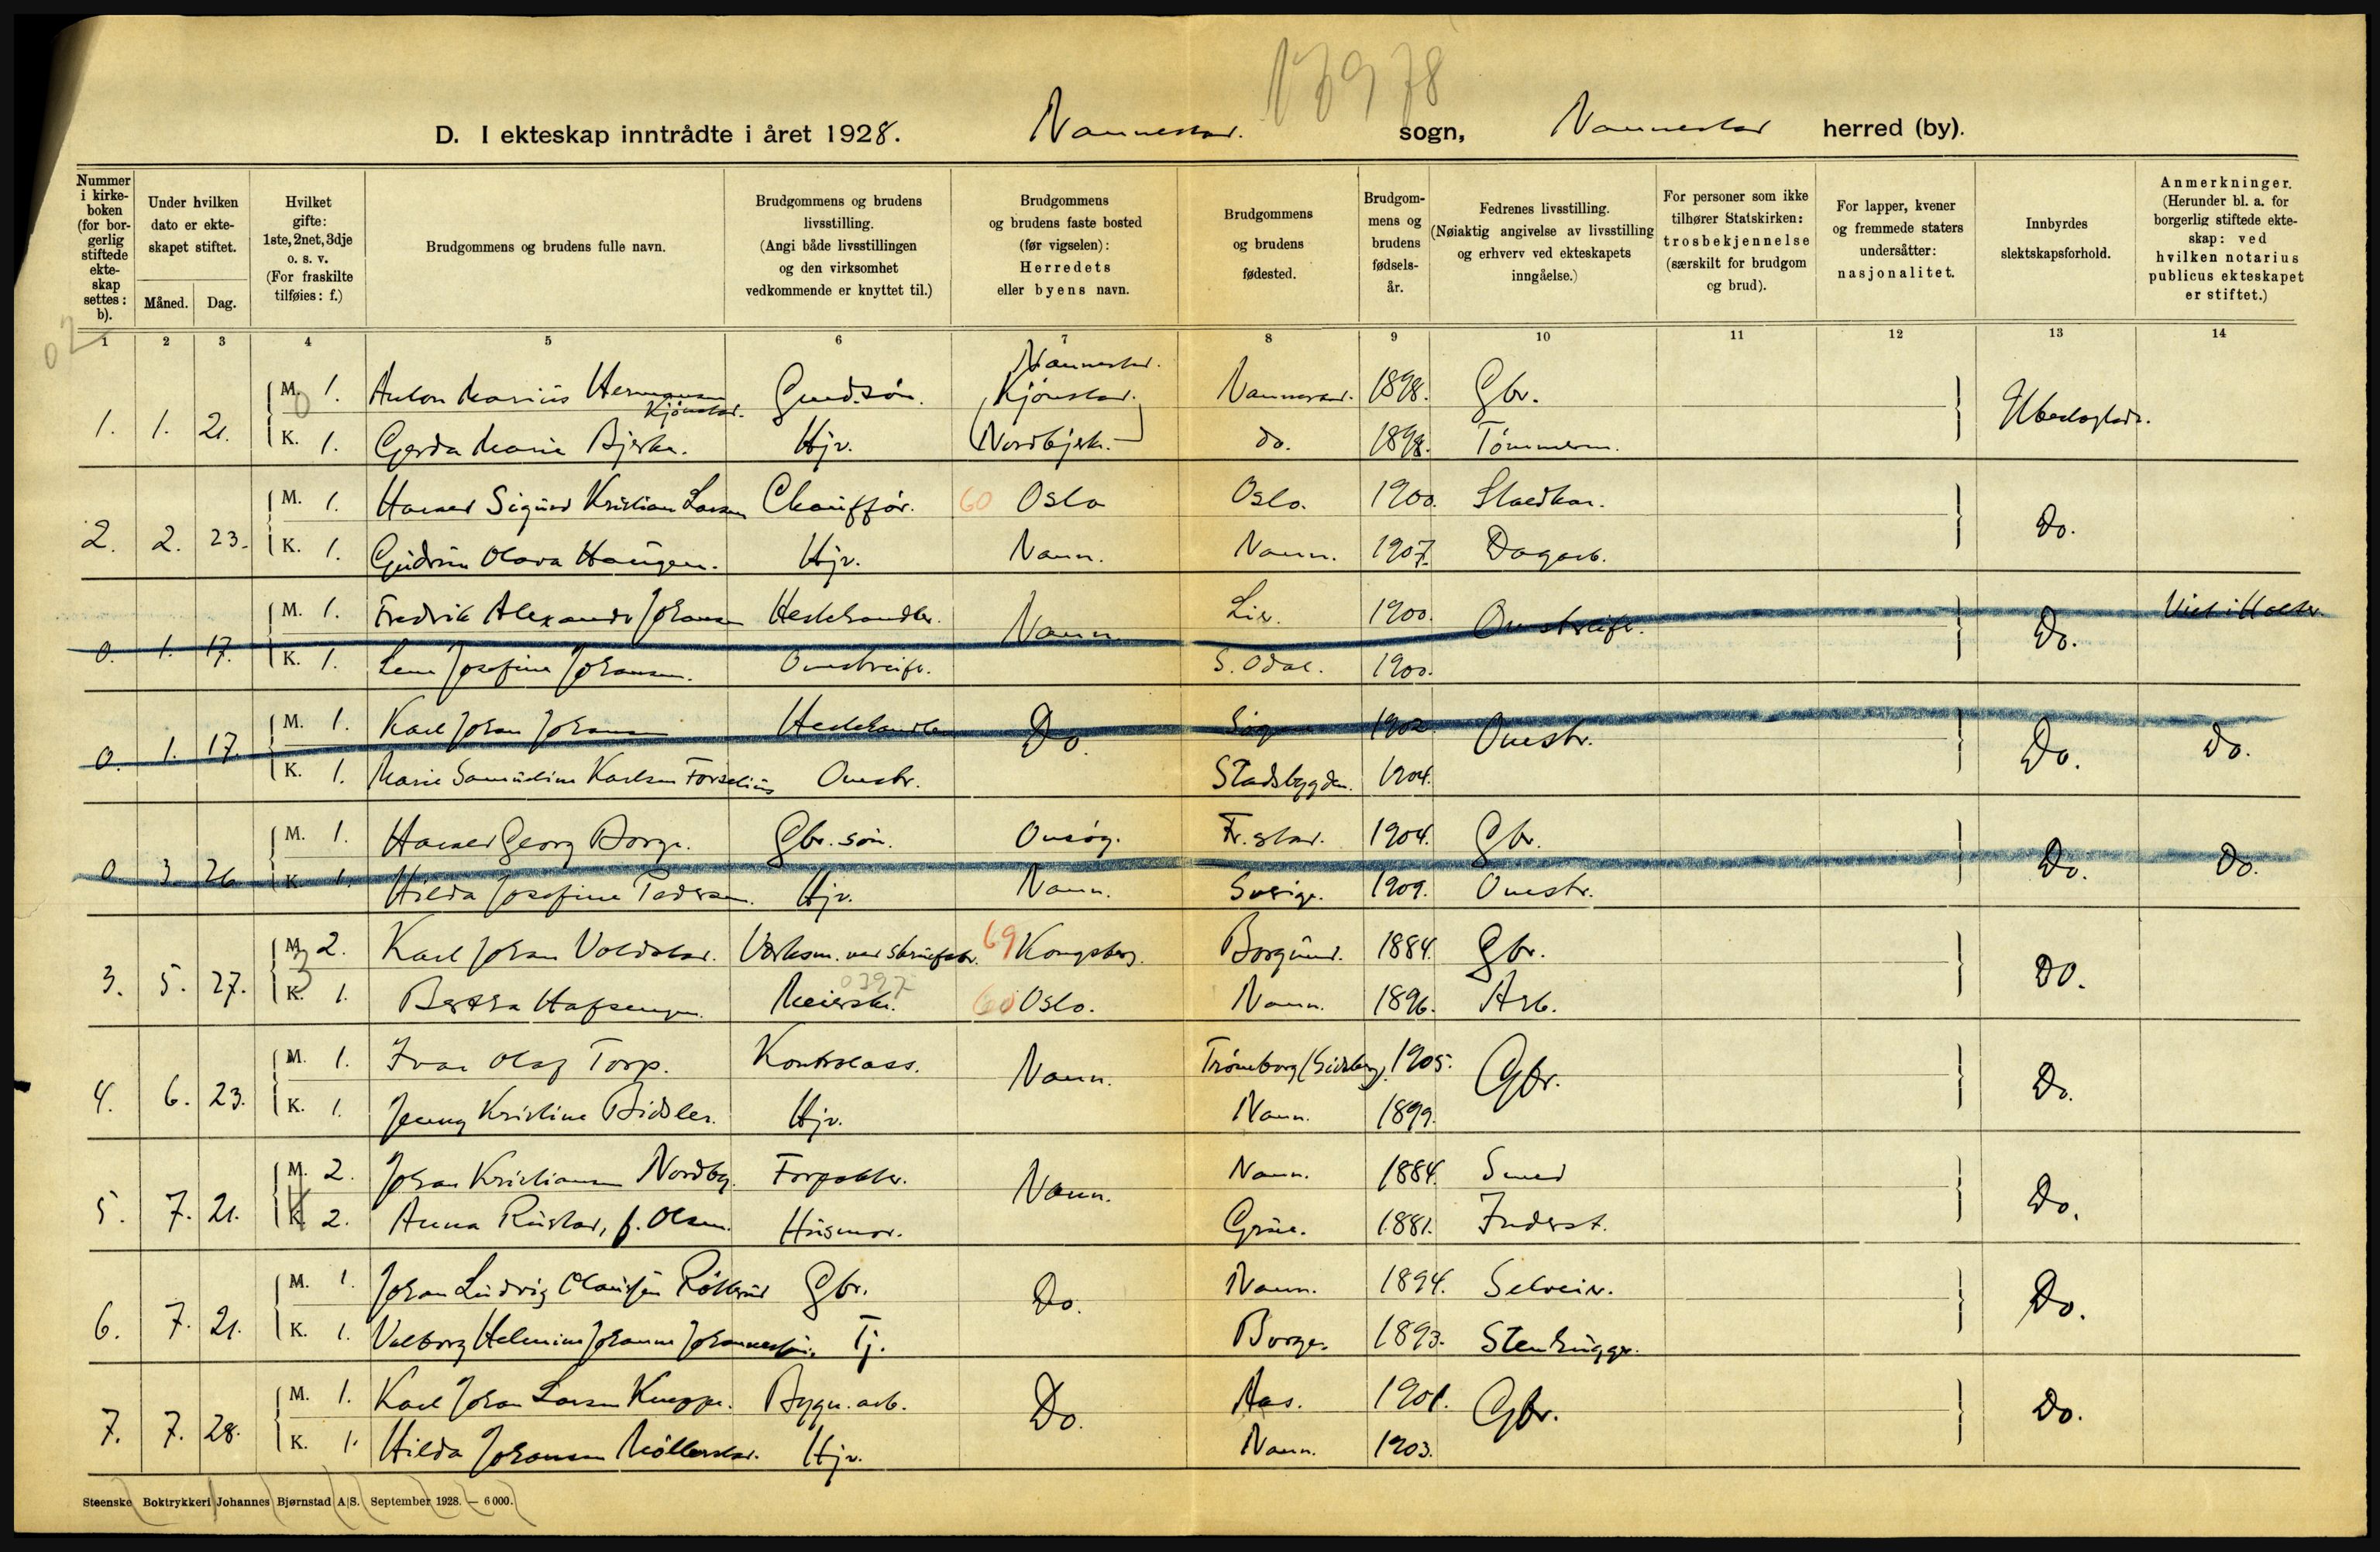 D. I ekteskap inntrådte i året 1928. Nannestad. sogn, Nannestad herred (by).
Nummer i kirke-boken (for bor-gerlig stiftede ekte-skap settes: b).
Under hvilken dato er ekte-skapet stiftet.
Måned. Dag.
Hvilket gifte: 1ste, 2net, 3dje o. s. v. (For fraskilte tilføies: f.)
Brudgommens og brudens fulle navn.
Brudgommens og brudens livsstilling. (Angi både livsstillingen og den virksomhet vedkommende er knyttet til.)
Brudgommens og brudens faste bosted (før vigselen): Herredets eller byens navn.
Brudgommens og brudens fødested.
Brudgom-mens og brudens fødsels-år.
Fedrenes livsstilling. (Nøiaktig angivelse av livsstilling og erhverv ved ekteskapets inngåelse.)
For personer som ikke tilhører Statskirken: trosbekjennelse (særskilt for brudgom og brud).
For lapper, kvener og fremmede staters undersåtter: nasjonalitet.
Innbyrdes slektskapsforhold.
Anmerkninger. (Herunder bl. a. for borgerlig stiftede ekte-skap: ved hvilken notarius publicus ekteskapet er stiftet.)
1 2 3 4 5 6 7 8 9 10 11 12 13 14
Nannestad.
M. 1. Anton Marius Hermansen Kjönstad. Gaardsön. Kjönstad. Nannestad. 1898. Gbr.
1. 1. 21. Ubeslagtede.
K. 1. Gerda Marie Bjerke. Hjv. Nordbjerke. do. 1898. Tömmerm.
M. 1. Harald Sigurd Kristian Larsen Chauffør. 60 Oslo Oslo. 1900.
2. 2. 23. Do.
K. 1. Gudrun Olava Haugen. Hjv. Nann. Nann. 1907. Dagarb.
M. 1. Fredrik Alexander Johansen Hestehandler. Lier. 1900.
0. 1. 17. Nann. Omstreifr. Do. Viet i Holter.
K. 1. Lena Josefine Johansen. Omstreifr. S. Odal. 1900.
M. 1. Karl Johan Johansen Hestehandler Sogn 1902.
0. 1. 17. Do. Omstr. Do. Do.
K. 1. Marie Samueline Karlsen Forselius Omstr. Stadsbygden. 1904.
M. 1. Harald Georg Borge. Gbr. sön. Onsøy. Fr.stad. 1904. Gbr.
0 3 26 Do. Do.
K. 1. Hilda Josefine Pedersen. Hjv. Nann. Sverige. 1909. Omstr.
M. 2. Karl Johan Voldstad. Værksm. ved skruefabr. 69 Kongsberg. Borgund. 1884. Gbr.
3. 5. 27. DO.
K. 1. Bertha Hafsengen. Meierske. 60 Oslo. Nann. 1896. Arb.
M. 1. Ivar Olaf Torp. Kontrolass. Trömborg (Eidsberg). 1905.
4. 6. 23. Nann. Gbr. Do.
K. 1. Jenny Kristine Bidsler. Hjv. Nann. 1899.
M. 2. Johan Kristiansen Nordby. Forpakter. Nann. 1884. Smed
5. 7. 21. Nann. Do.
K. 2. Anna Rustad, f. Olsen. Husmor. Grue. 1881. Inderst.
M. 1. Johan Ludvig Clausen Gbr. Nann. 1894. Selveier.
6. 7. 21. Do. Do.
K. 1. Valborg Helmine Johanne Johannessen. Tj. Borge. 1893. Stenhugger.
M. 1. Karl Johan Larsen Knappe. Bygn. arb. Aas. 1901.
7. 7. 28. Do. Gbr. Do.
K. 1. Hilda Johansen Möllerstad. Hjv. Nann. 1903.
Steenske Boktrykkeri Johannes Bjørnstad A|S. September 1928. — 6000.